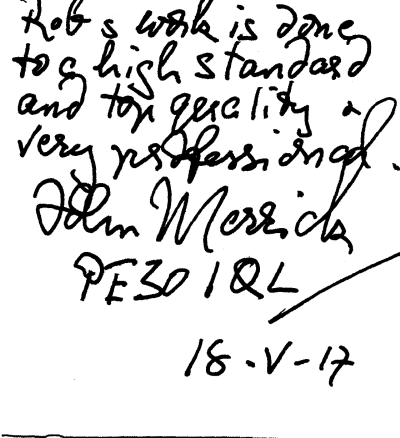 Rob s work is done
to a high standard
and top quality &
very professional.
John Merrick
PE30 1QL
18 - V - 17